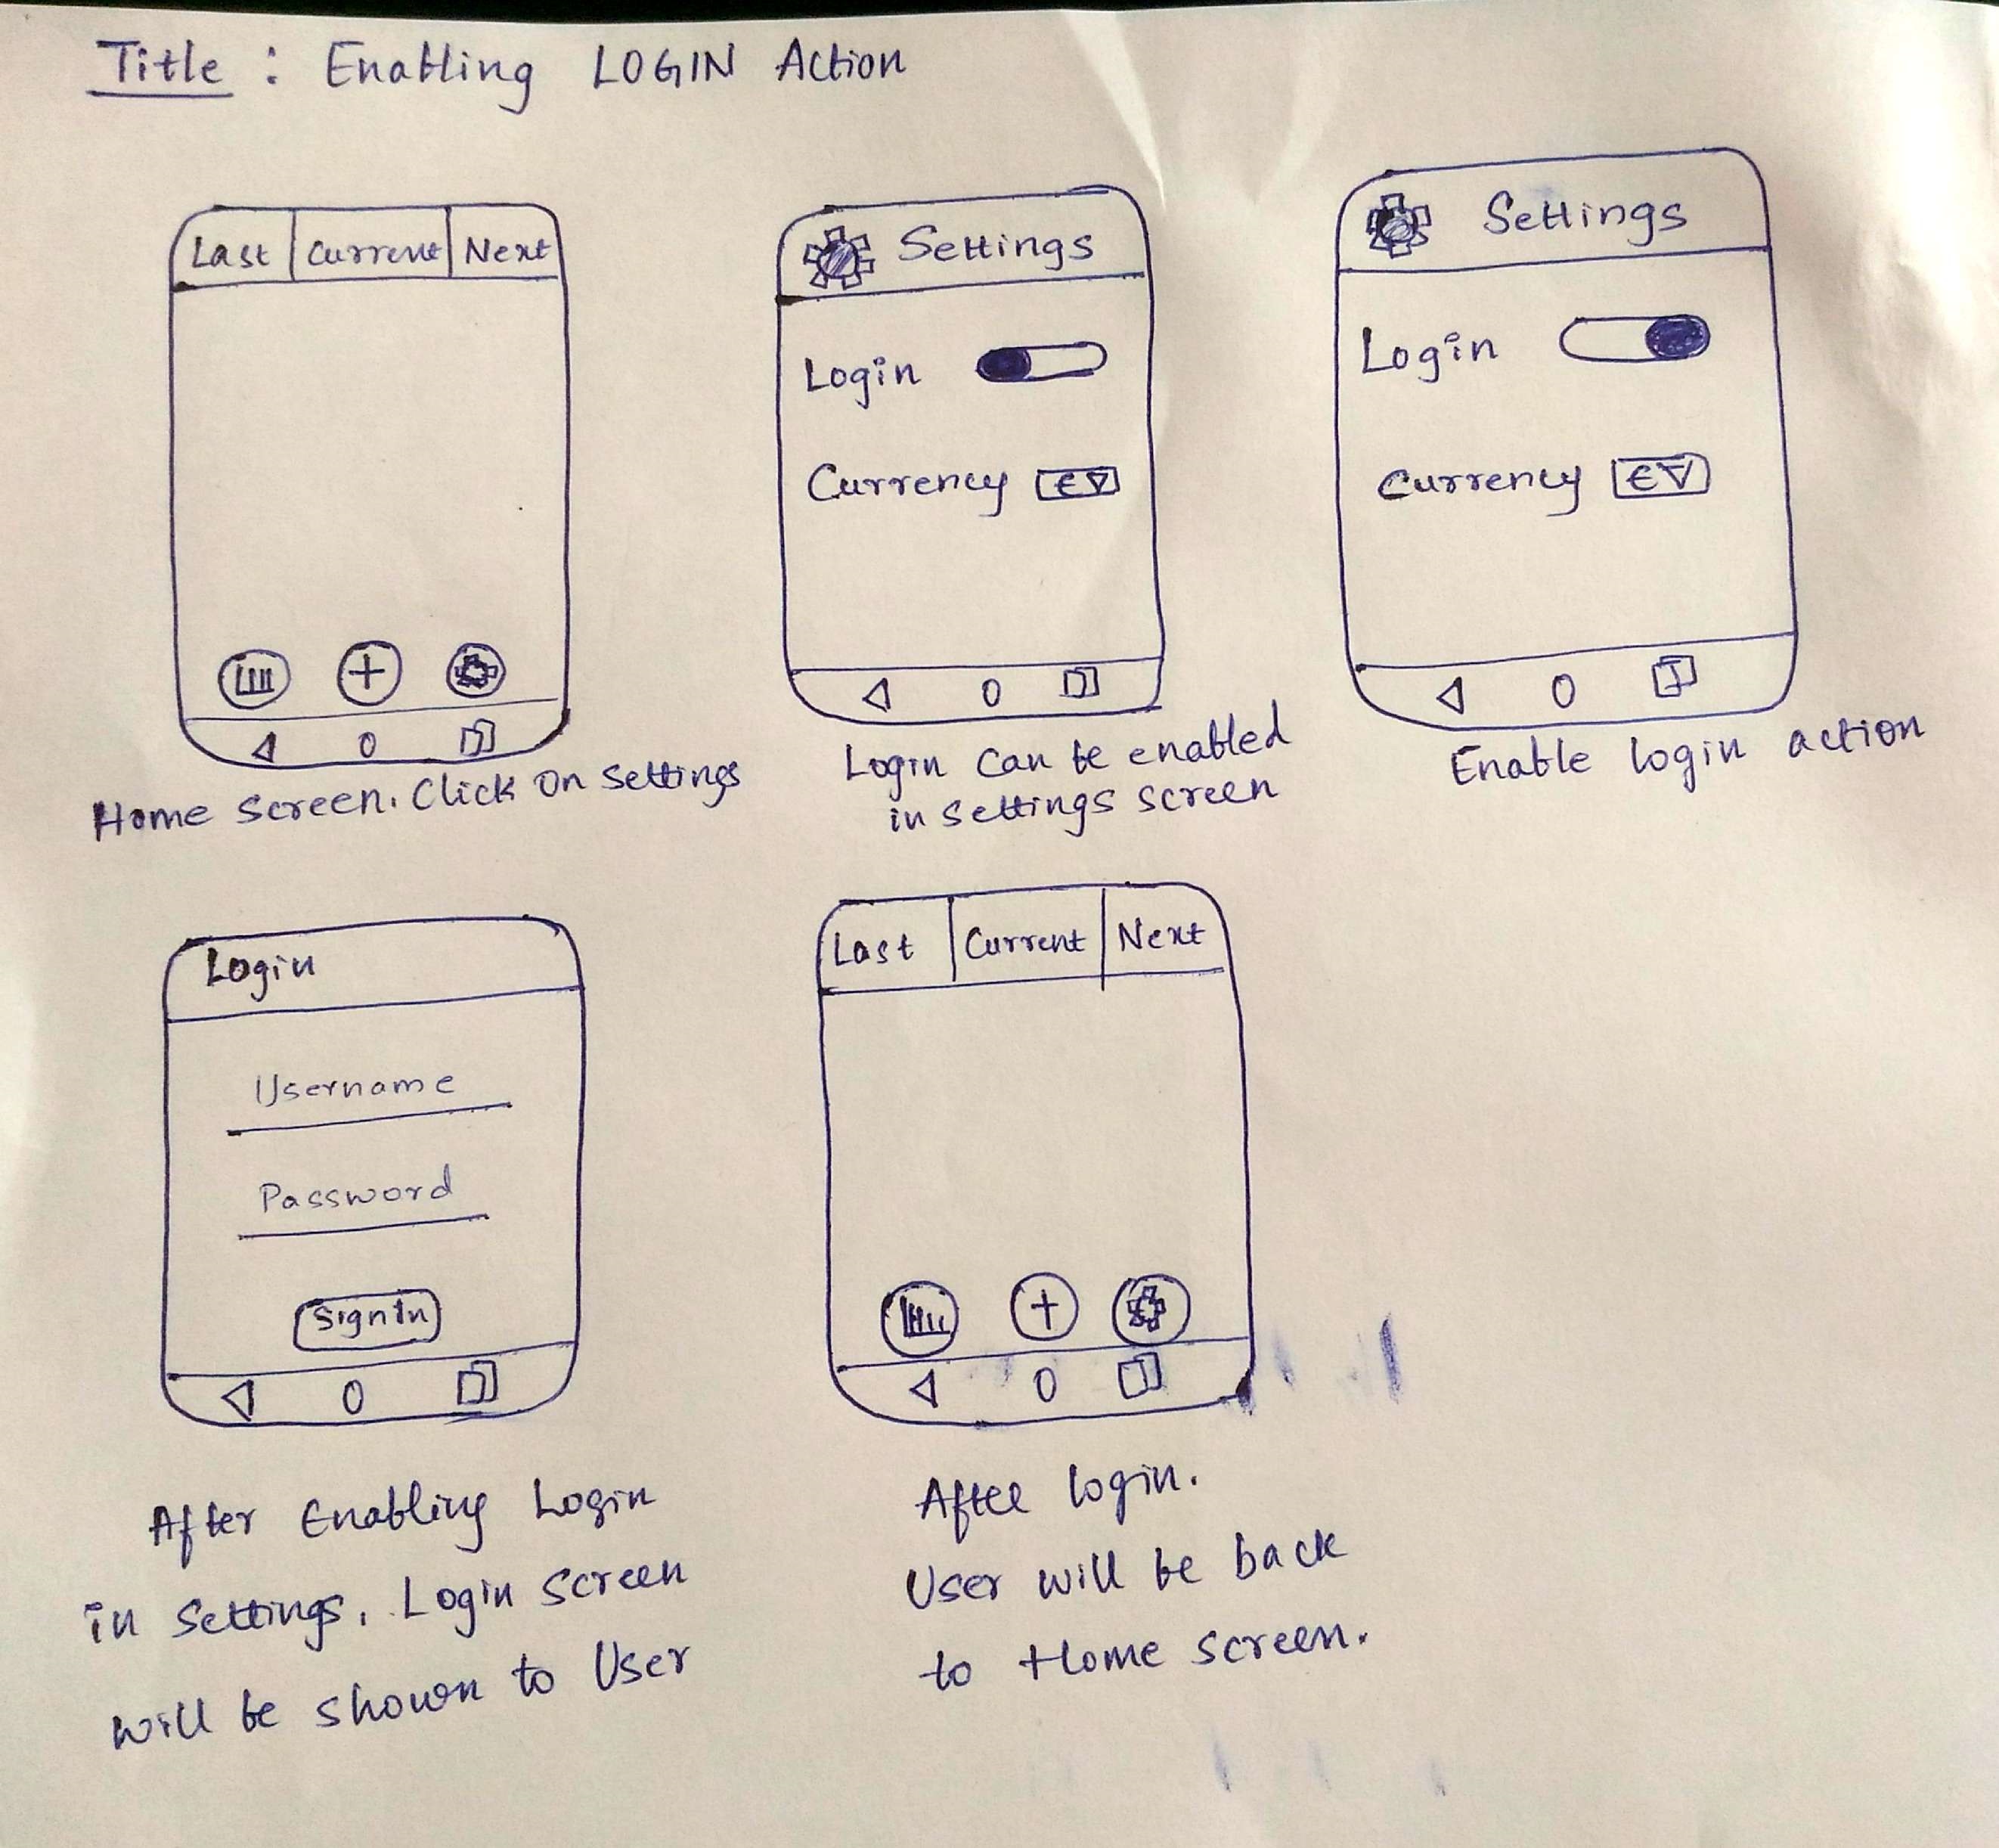 Title : Enabling LOGIN Action
Last Current Next
Home Screen. Click on Settings
Settings
Login
Currency €
Login can be enabled
in settings screen
Settings
Login
Currency €
Enable login action
Login
Username
Password
SignIn
After Enabling Login
in Settings, Login Screen
will be shown to User
Last Current Next
After login.
User will be back
to Home screen.